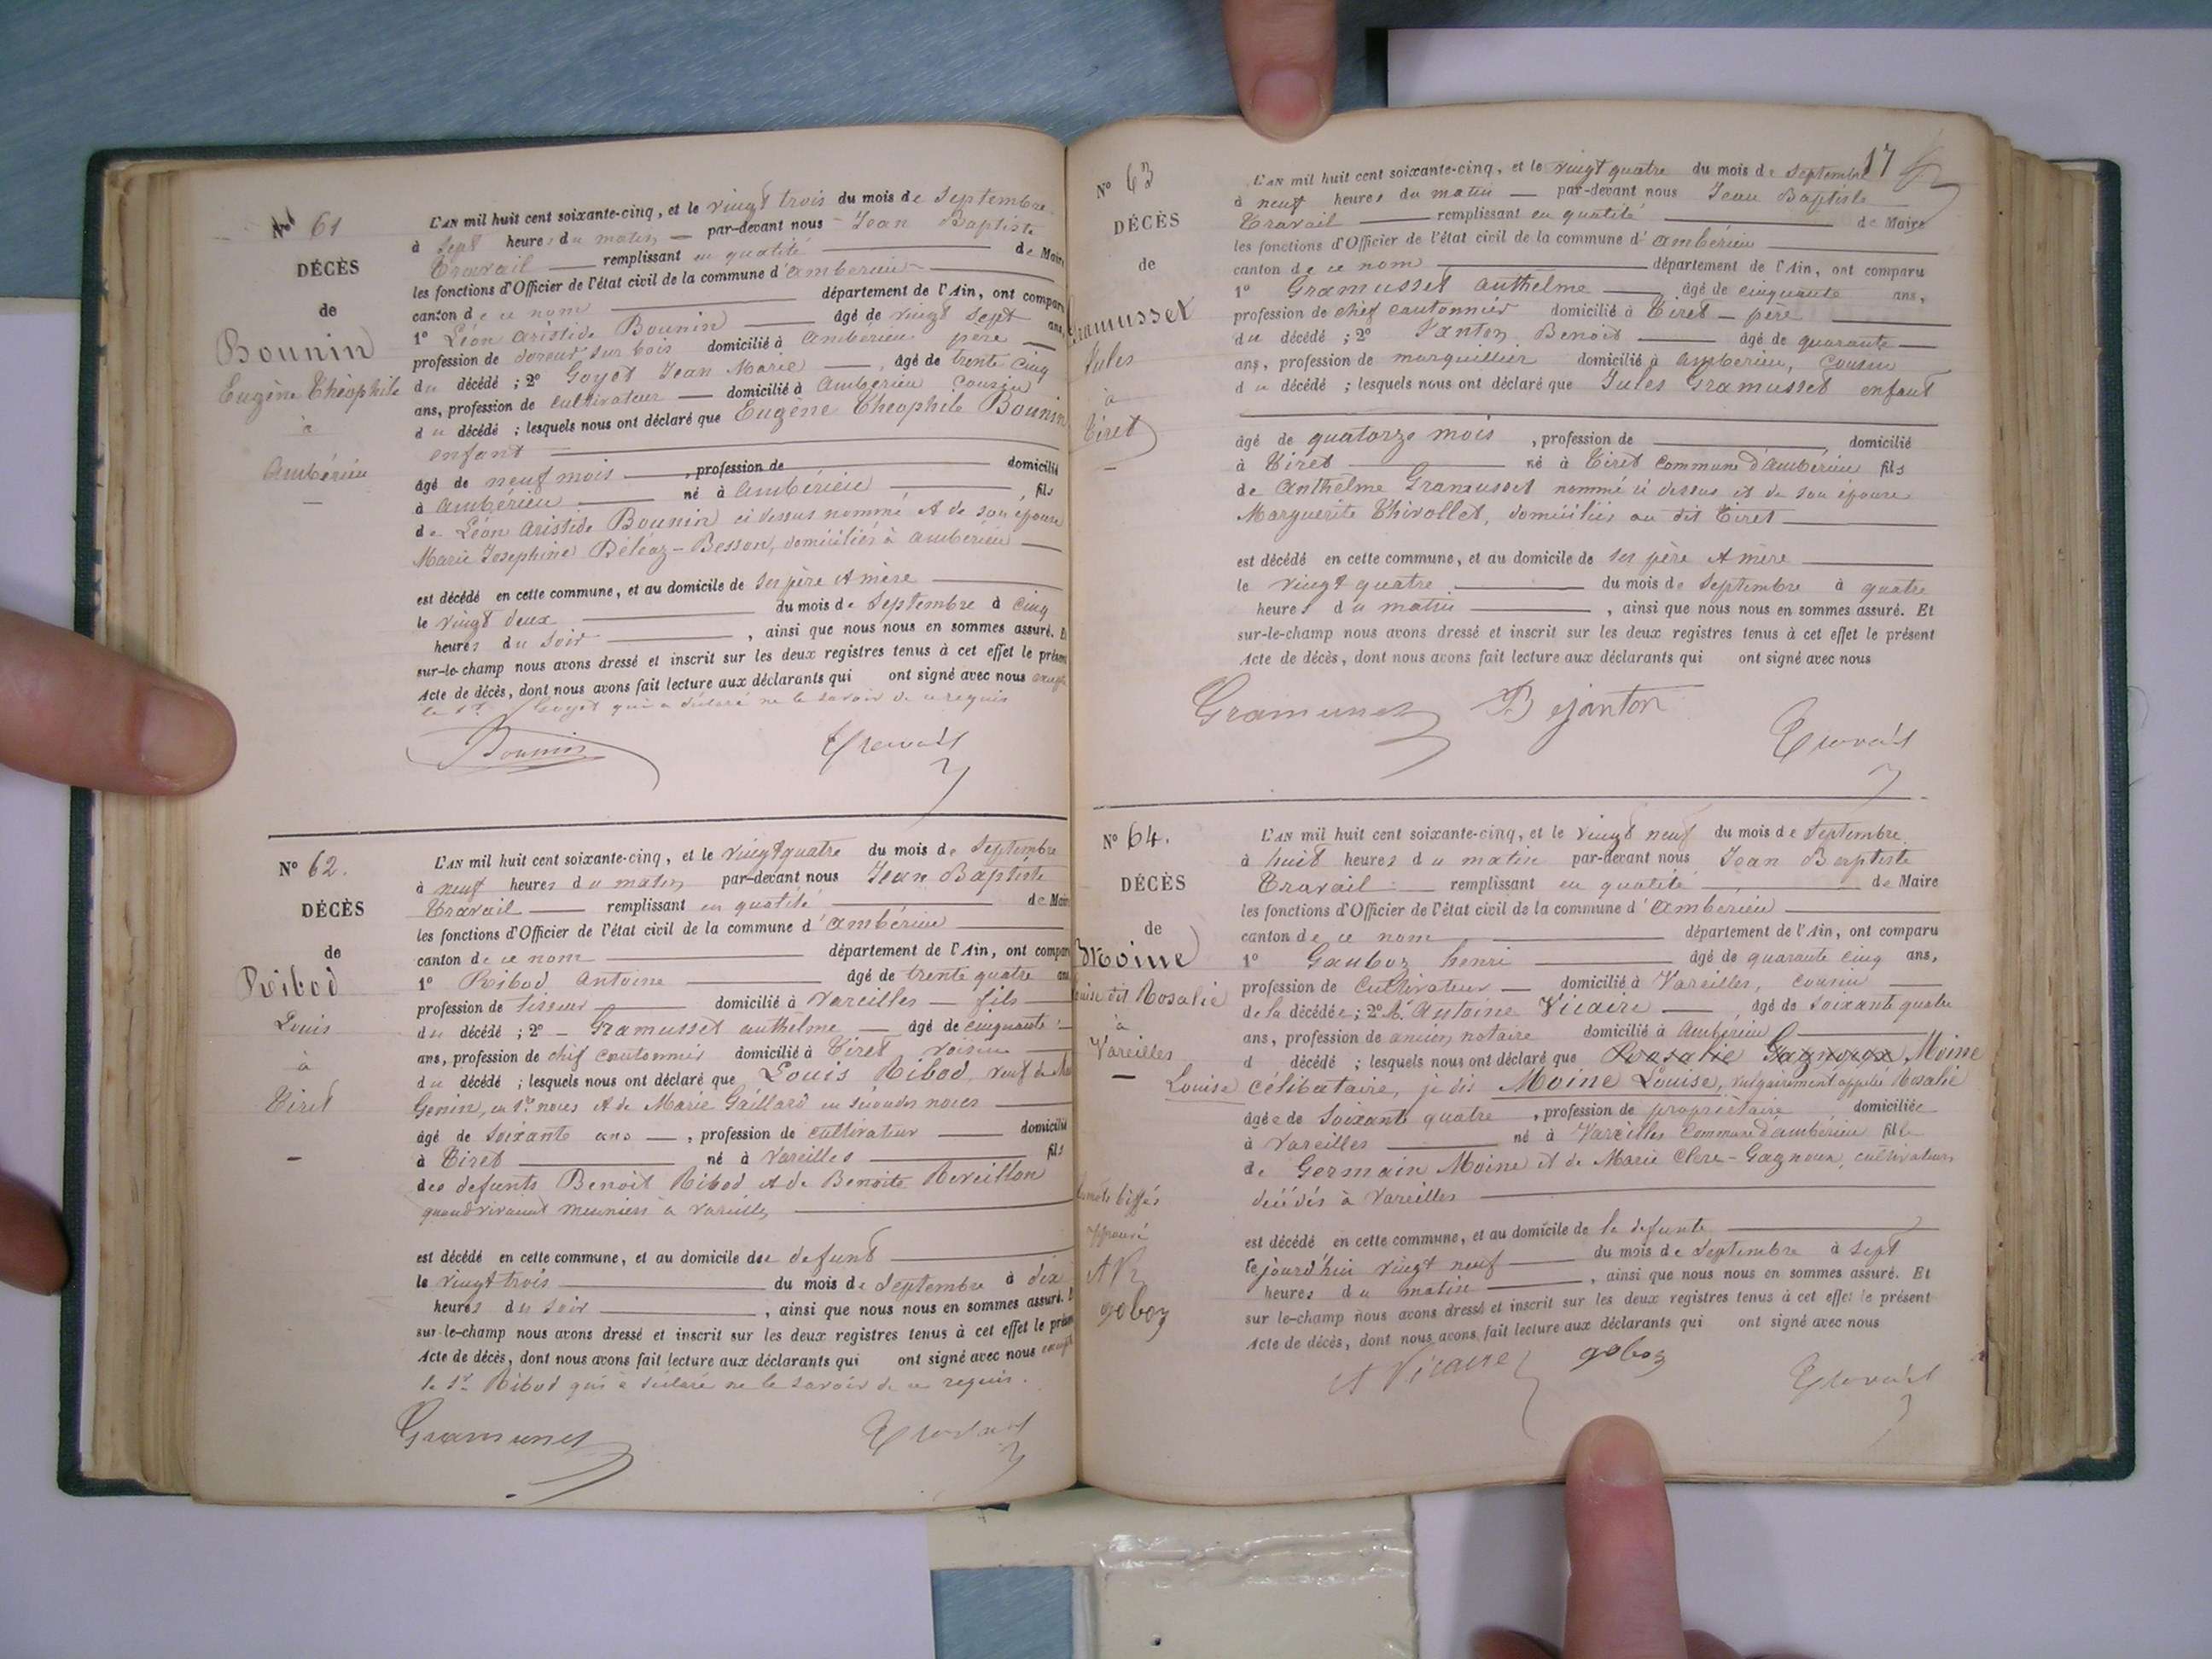 No 61
DÉCÈS
de
Bounin
Eugène Théophile
à
Ambérieu
L'AN mil huit cent soixante-cinq, et le vingt trois du mois de Septembre
à sept heures du matin par-devant nous Jean Baptiste
Travail remplissant en qualité de Maire
les fonctions d'Officier de l'état civil de la commune d'Ambérieu
canton de ce nom département de l'Ain, ont comparu
1° Léon Aristide Bounin âgé de vingt sept ans
profession de doreur sur bois domicilié à Ambérieu père
du décédé ; 2° Goyot Jean Marie, âgé de trente cinq
ans, profession de cultivateur domicilié à Ambérieu cousin
du décédé ; lesquels nous ont déclaré que Eugène Théophile Bounin
enfant
âgé de neuf mois, profession de domicilié
à Ambérieu né à Ambérieu, fils
de Léon Aristide Bounin ci dessus nommé et de son épouse
Marie Josephine Béléaz-Besson, domiciliés à Ambérieu
est décédé en cette commune, et au domicile de ses père et mère
le vingt deux du mois de Septembre à cinq
heures du soir, ainsi que nous nous en sommes assuré. Et
sur-le-champ nous avons dressé et inscrit sur les deux registres tenus à cet effet le présent
Acte de décès, dont nous avons fait lecture aux déclarants qui ont signé avec nous excepté
le Sr. Goyot qui a déclaré ne le savoir de ce requis
Bounin Travail
N° 62.
DÉCÈS
de
Ribod
Louis
à
Tiret
L'AN mil huit cent soixante-cinq, et le vingt quatre du mois de Septembre
à neuf heures du matin par-devant nous Jean Baptiste
Travail remplissant en qualité de Maire
les fonctions d'Officier de l'état civil de la commune d'Ambérieu
canton de ce nom département de l'Ain, ont comparu
1° Ribod Antoine âgé de trente quatre ans
profession de tisseur domicilié à Vareilles fils
du décédé ; 2° Gramusset Anthelme âgé de cinquante
ans, profession de chef cantonnier domicilié à Tiret voisin
du décédé ; lesquels nous ont déclaré que Louis Ribod, veuf de
Genin, en 1res noces et de Marie Gaillard en secondes noces
âgé de soixante ans, profession de cultivateur domicilié
à Tiret né à Vareilles fils
des defunts Benoit Ribod et de Benoite Reveillon
quand vivaient meuniers à Vareilles
est décédé en cette commune, et au domicile du defunt
le vingt trois du mois de Septembre à dix
heures du soir, ainsi que nous nous en sommes assuré. Et
sur-le-champ nous avons dressé et inscrit sur les deux registres tenus à cet effet le présent
Acte de décès, dont nous avons fait lecture aux déclarants qui ont signé avec nous excepté
le Sr. Ribod qui a déclaré ne le savoir de ce requis.
Gramusset Travail
17
N° 63
DÉCÈS
de
Gramusset
Jules
à
Tiret
L'AN mil huit cent soixante-cinq, et le vingt quatre du mois de Septembre
à neuf heures du matin par-devant nous Jean Baptiste
Travail remplissant en qualité de Maire
les fonctions d'Officier de l'état civil de la commune d'Ambérieu
canton de ce nom département de l'Ain, ont comparu
1° Gramusset Anthelme âgé de cinquante ans,
profession de chef cantonnier domicilié à Tiret père
du décédé ; 2° Janton Benoit âgé de quarante
ans, profession de marguillier domicilié à Ambérieu, cousin
du décédé ; lesquels nous ont déclaré que Jules Gramusset enfant
âgé de quatorze mois, profession de domicilié
à Tiret né à Tiret commune d'Ambérieu fils
de Anthelme Gramusset nommé ci dessus et de son épouse
Marguerite Thivollet, domiciliés au dit Tiret
est décédé en cette commune, et au domicile de ses père et mère
le vingt quatre du mois de Septembre à quatre
heures du matin, ainsi que nous nous en sommes assuré. Et
sur-le-champ nous avons dressé et inscrit sur les deux registres tenus à cet effet le présent
Acte de décès, dont nous avons fait lecture aux déclarants qui ont signé avec nous
Gramusset B Janton Travail
N° 64.
DÉCÈS
de
Moine
Louise dit Rosalie
à
Vareilles
L'AN mil huit cent soixante-cinq, et le vingt neuf du mois de Septembre
à huit heures du matin par-devant nous Jean Baptiste
Travail remplissant en qualité de Maire
les fonctions d'Officier de l'état civil de la commune d'Ambérieu
canton de ce nom département de l'Ain, ont comparu
1° Gauboz henri âgé de quarante cinq ans,
profession de Cultivateur domicilié à Vareilles, cousin
de la décédée ; 2° Mr. Antoine Vicaire, âgé de soixante quatre
ans, profession de ancien notaire domicilié à Ambérieu
d décédé ; lesquels nous ont déclaré que Rosalie Gagnoux Moine
Louise célibataire, je dis Moine Louise, vulgairement appelée Rosalie
âgée de soixante quatre, profession de propriétaire domiciliée
à Vareilles né à Vareilles Commune d'Ambérieu fille
de Germain Moine et de Marie Clere-Gagnoux, cultivateurs
décédés à Vareilles
est décédé en cette commune, et au domicile de la défunte
le jourd'hui vingt neuf du mois de Septembre à sept
heures du matin, ainsi que nous nous en sommes assuré. Et
sur le-champ nous avons dressé et inscrit sur les deux registres tenus à cet effet le présent
Acte de décès, dont nous avons fait lecture aux déclarants qui ont signé avec nous
mots biffés
approuvé
goboz
A Vicaire goboz Travail